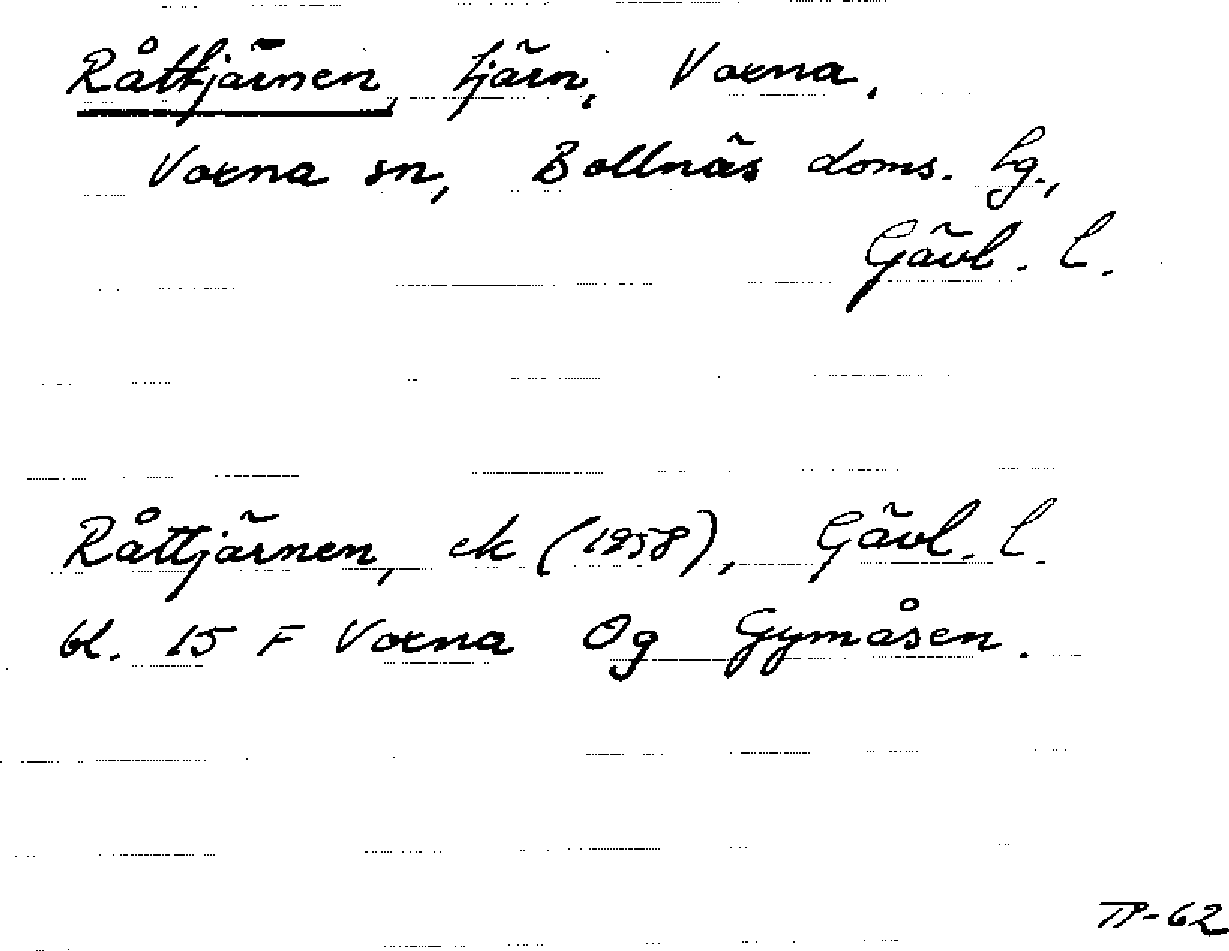 Råttjärnen, tjärn, Voxna.
Voxna sn, Bollnäs doms. tg.,
Gävl. l.
Råttjärnen, ek (1958), Gävl. l.
bl. 15 F Voxna 0g Gymåsen.
TP-62